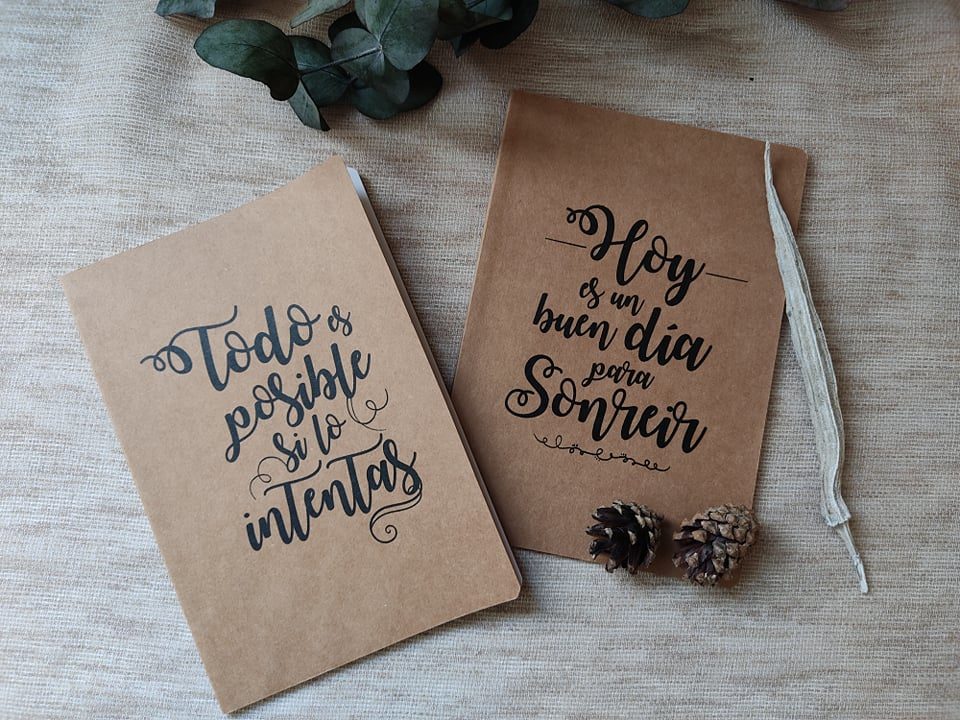 Todo es
posible
si lo
intentas
Hoy
es un
buen día
para
Sonreir